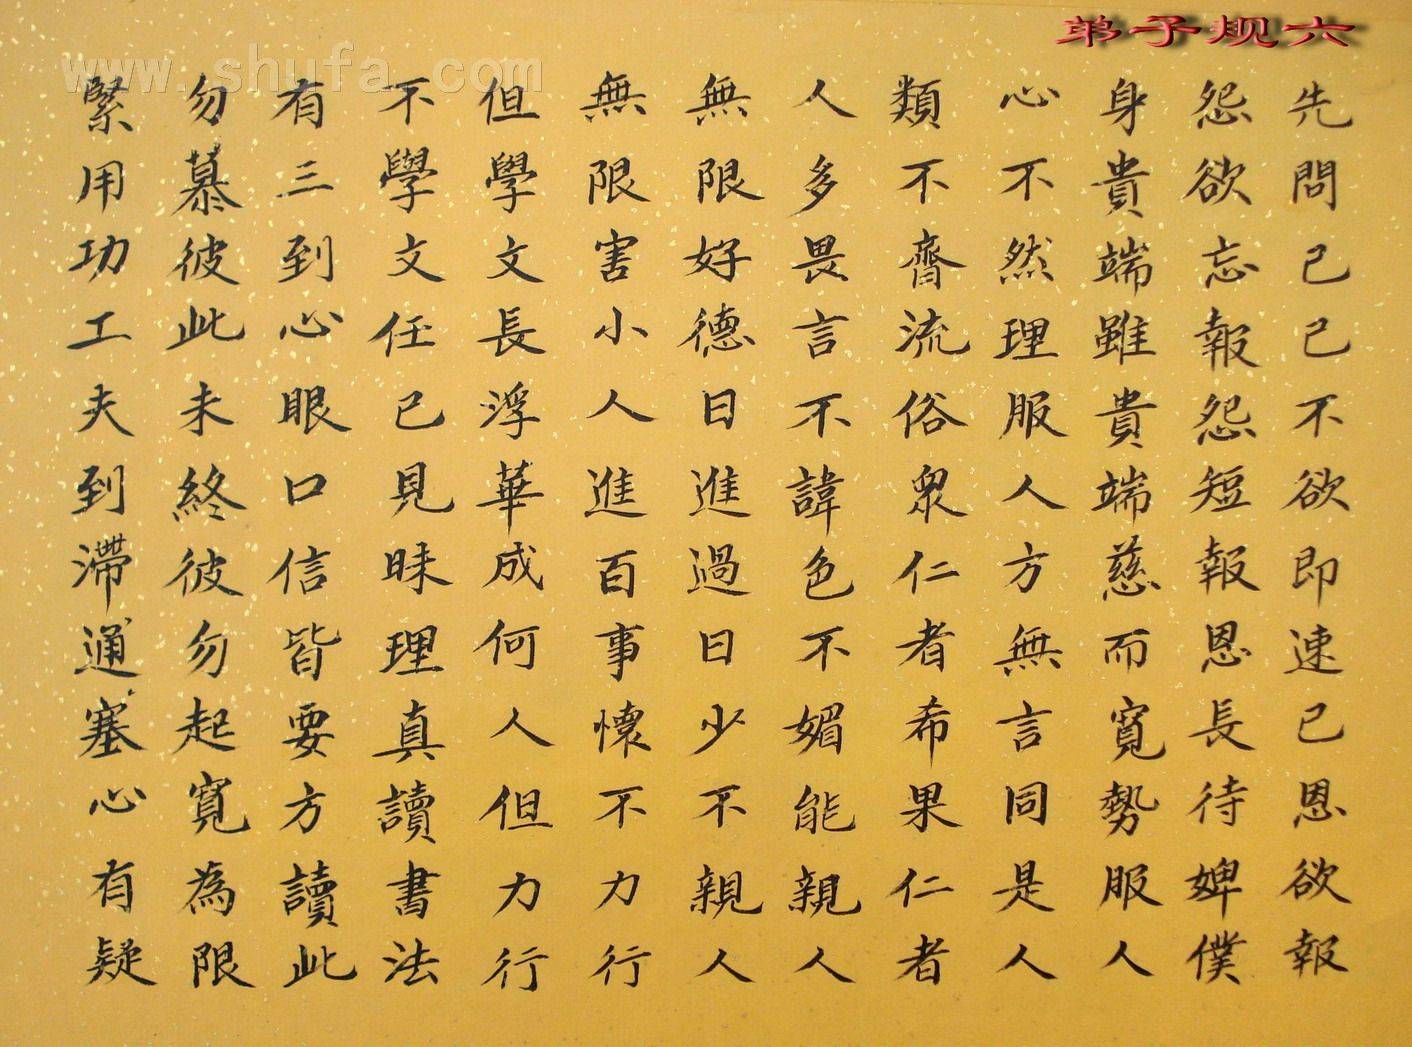 弟子规六
www.shufa.com
先問己己不欲即速已恩欲報
怨欲忘報怨短報恩長待婢僕
身貴端雖貴端慈而寬勢服人
心不然理服人方無言同是人
類不齊流俗衆仁者希果仁者
人多畏言不諱色不媚能親人
無限好德日進過日少不親人
無限害小人進百事懷不力行
但學文長浮華成何人但力行
不學文任己見昧理真讀書法
有三到心眼口信皆要方讀此
勿慕彼此未終彼勿起寬為限
緊用功工夫到滯通塞心有疑